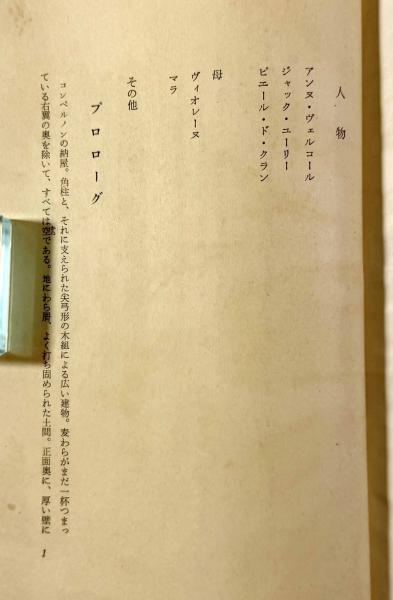 人物
アンヌ・ヴェルコール
ジャック・ユーリー
ピエール・ド・クラン
母
ヴィオレーヌ
マラ
その他
プロローグ
コンベルノンの納屋。角柱と、それに支えられた尖弓形の木組による広い建物。麦わらがまだ一杯つまっ
ている右翼の奥を除いて、すべては空である。地にわら屑、よく打ち固められた土間。正面奥に、厚い壁に
1